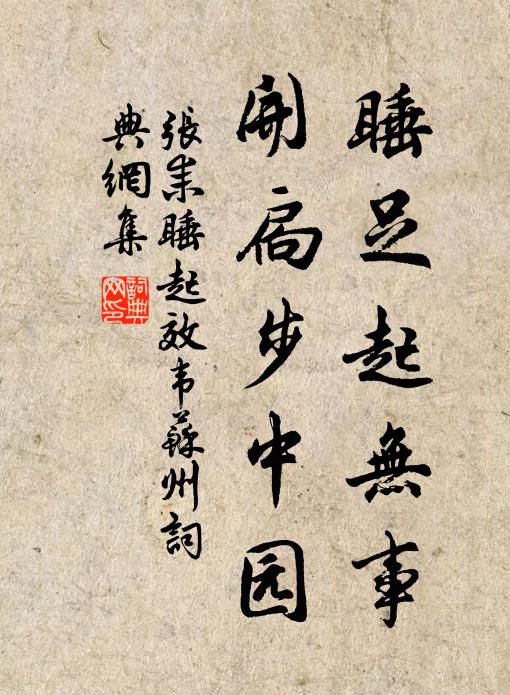 睡足起無事
開扃步中园
張耒睡起效韦蘇州詞
典網集
詞典
网印